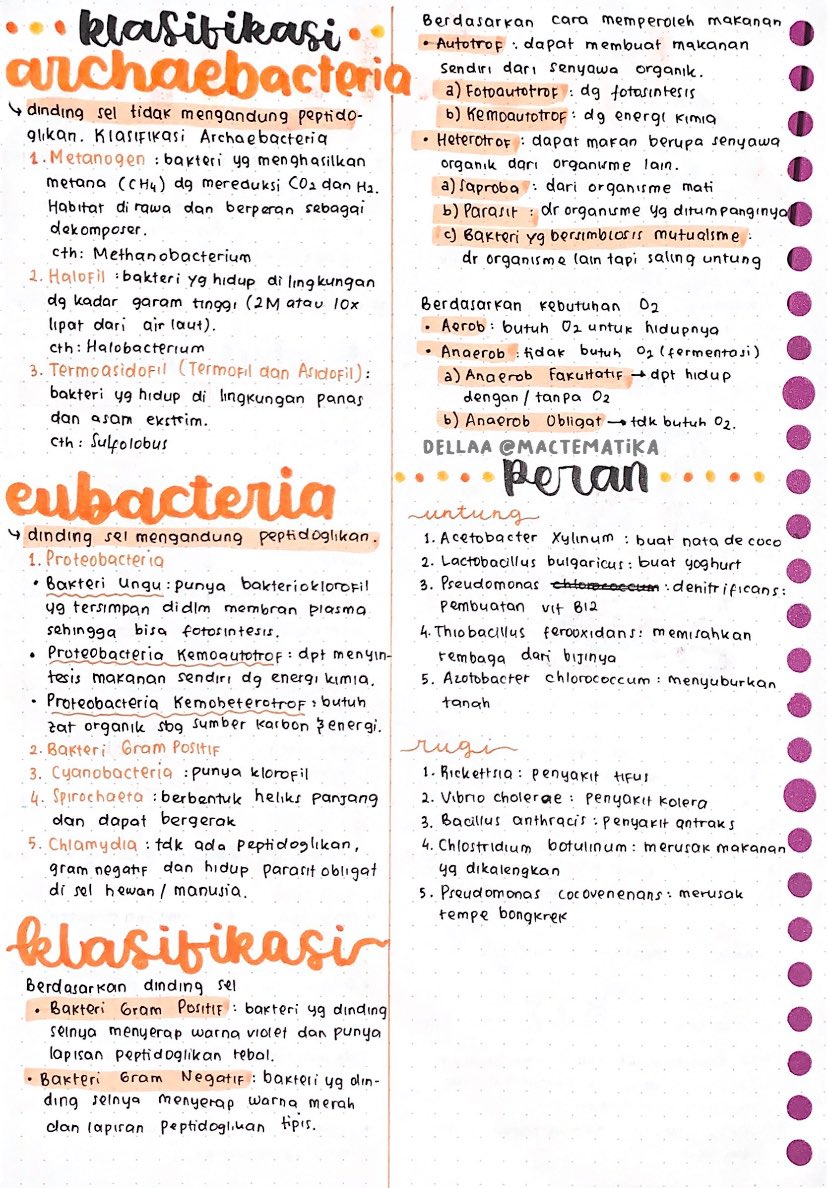 klasifikasi
archaebacteria
↳ dinding sel tidak mengandung peptido-
glikan. Klasifikasi Archaebacteria
1. Metanogen : bakteri yg menghasilkan
metana (CH4) dg mereduksi CO2 dan H2.
Habitat di rawa dan berperan sebagai
dekomposer.
cth: Methanobacterium
2. Halofil : bakteri yg hidup di lingkungan
dg kadar garam tinggi (2M atau 10x
lipat dari air laut).
cth: Halobacterium
3. Termoasidofil (Termofil dan Asidofil) :
bakteri yg hidup di lingkungan panas
dan asam ekstrim.
cth: Sulfolobus
eubacteria
↳ dinding sel mengandung peptidoglikan.
1. Proteobacteria
• Bakteri Ungu : punya bakterioklorofil
yg tersimpan didlm membran plasma
sehingga bisa fotosintesis.
• Proteobacteria Kemoautotrof : dpt menyin-
tesis makanan sendiri dg energi kimia.
• Proteobacteria Kemoheterotrof : butuh
zat organik sbg sumber karbon & energi.
2. Bakteri Gram Positif
3. Cyanobacteria : punya klorofil
4. Spirochaeta : berbentuk heliks panjang
dan dapat bergerak
5. Chlamydia : tdk ada peptidoglikan,
gram negatif dan hidup parasit obligat
di sel hewan / manusia.
klasifikasi
Berdasarkan dinding sel
• Bakteri Gram Positif : bakteri yg dinding
selnya menyerap warna violet dan punya
lapisan peptidoglikan tebal.
• Bakteri Gram Negatif : bakteri yg din-
ding selnya menyerap warna merah
dan lapisan peptidoglikan tipis.
Berdasarkan cara memperoleh makanan
• Autotrof : dapat membuat makanan
sendiri dari senyawa organik.
a) Fotoautotrof : dg fotosintesis
b) Kemoautotrof : dg energi kimia
• Heterotrof : dapat makan berupa senyawa
organik dari organisme lain.
a) Saproba : dari organisme mati
b) Parasit : dr organisme yg ditumpanginya
c) Bakteri yg bersimbiosis mutualisme :
dr organisme lain tapi saling untung
Berdasarkan kebutuhan O2
• Aerob : butuh O2 untuk hidupnya
• Anaerob : tidak butuh O2 (fermentasi)
a) Anaerob Fakultatif → dpt hidup
dengan / tanpa O2
b) Anaerob Obligat → tdk butuh O2.
DELLAA @MACTEMATIKA
peran
untung
1. Acetobacter Xylinum : buat nata de coco
2. Lactobacillus bulgaricus : buat yoghurt
3. Pseudomonas chlorococcum : denitrificans :
pembuatan vit B12
4. Thiobacillus ferooxidans : memisahkan
tembaga dari bijinya
5. Azotobacter chlorococcum : menyuburkan
tanah
rugi
1. Rickettsia : penyakit tifus
2. Vibrio cholerae : penyakit kolera
3. Bacillus anthracis : penyakit antraks
4. Chlostridium botulinum : merusak makanan
yg dikalengkan
5. Pseudomonas cocovenenans : merusak
tempe bongkrek